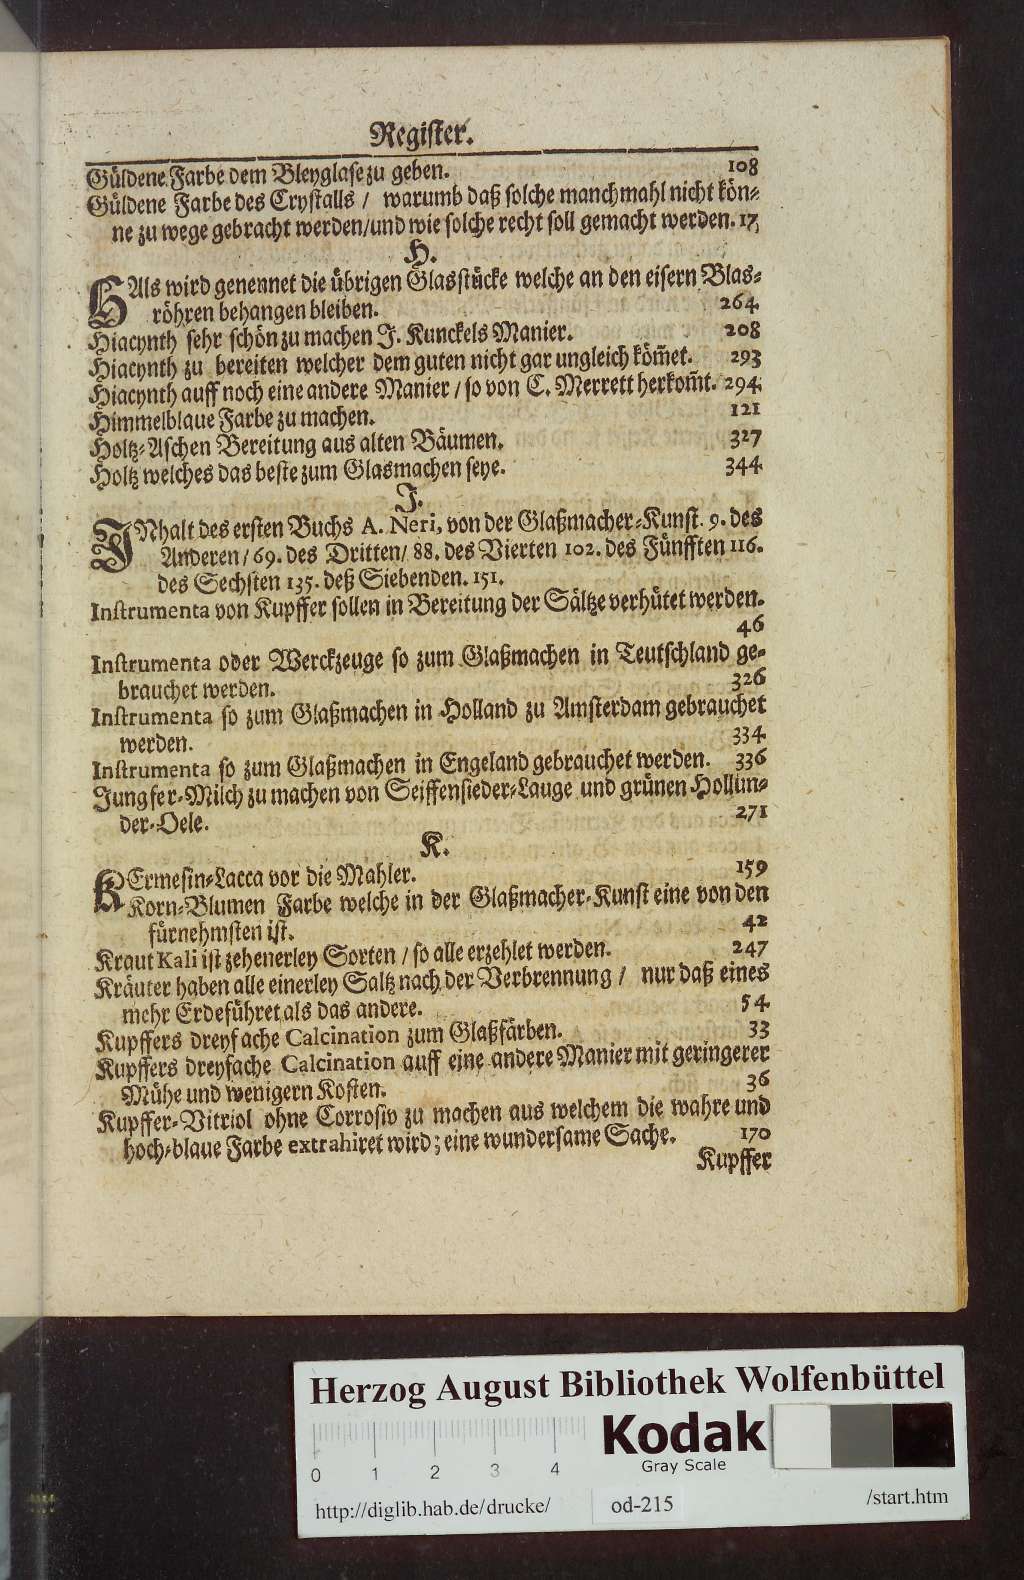 Register.
Güldene Farbe dem Bleyglase zu geben. 108
Güldene Farbe des Crystalls / warumb daß solche manchmahl nicht kön-
ne zu wege gebracht werden/und wie solche recht soll gemacht werden. 17
H.
HAls wird genennet die übrigen Glasstücke welche an den eisern Blas-
röhren behangen bleiben. 264
Hiacynth sehr schön zu machen J. Kunckels Manier. 208
Hiacynth zu bereiten welcher dem guten nicht gar ungleich kom̄et. 293
Hiacynth auff noch eine andere Manier / so von C. Merrett herkom̄t. 294.
Himmelblaue Farbe zu machen. 121
Holtz-Aschen Bereitung aus alten Bäumen. 327
Holtz welches das beste zum Glasmachen seye. 344
J.
JNhalt des ersten Buchs A. Neri, von der Glaßmacher-Kunst. 9. des
Anderen / 69. des Dritten/ 88. des Vierten 102. des Fünfften 116.
des Sechsten 135. deß Siebenden. 151.
Instrumenta von Kupffer sollen in Bereitung der Sältze verhütet werden.
46
Instrumenta oder Werckzeuge so zum Glaßmachen in Teutschland ge-
brauchet werden. 326
Instrumenta so zum Glaßmachen in Holland zu Amsterdam gebrauchet
werden. 334
Instrumenta so zum Glaßmachen in Engeland gebrauchet werden. 336
Jungfer-Milch zu machen von Seiffensieder-Lauge und grünen Hollun-
der-Oele. 271
K.
KErmesin-Lacca vor die Mahler. 159
Korn-Blumen Farbe welche in der Glaßmacher-Kunst eine von den
fürnehmsten ist. 42
Kraut Kali ist zehenerley Sorten / so alle erzehlet werden. 247
Kräuter haben alle einerley Saltz nach der Verbrennung / nur daß eines
mehr Erde führet als das andere. 54
Kupffers dreyfache Calcination zum Glaßfärben. 33
Kupffers dreyfache Calcination auff eine andere Manier mit geringerer
Mühe und wenigern Kosten. 36
Kupffer-Vitriol ohne Corrosiv zu machen aus welchem die wahre und
hoch-blaue Farbe extrahiret wird; eine wundersame Sache. 170
Kupffer
Herzog August Bibliothek Wolfenbüttel
Kodak
Gray Scale
0 1 2 3 4
http://diglib.hab.de/drucke/ od-215 /start.htm